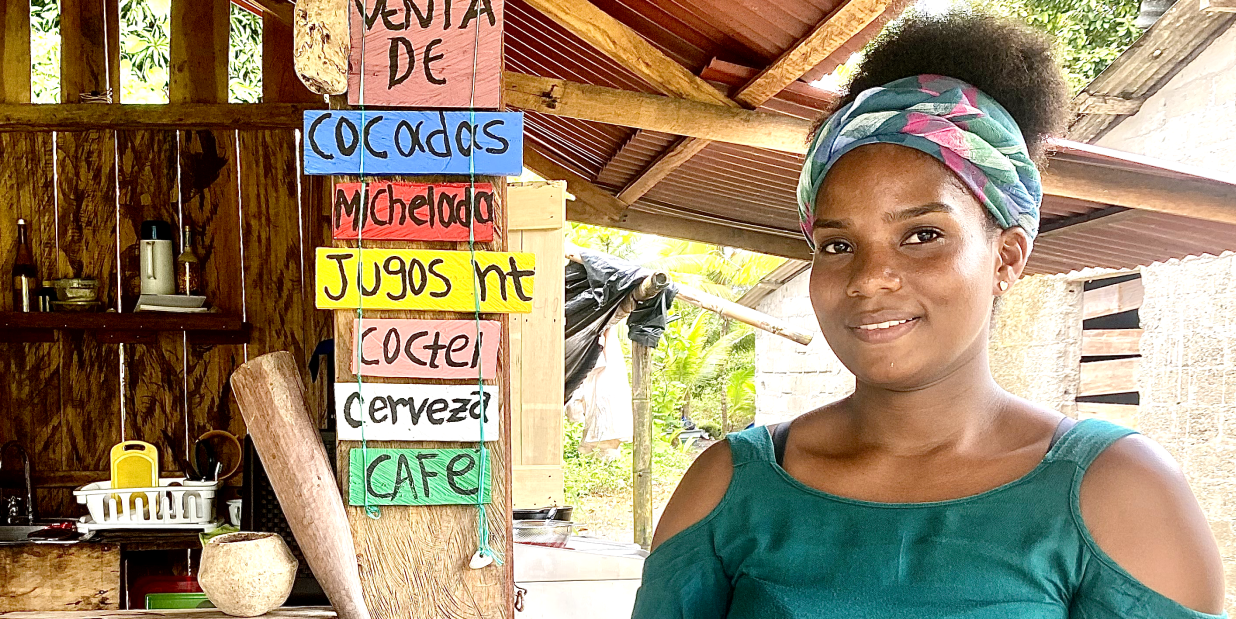 VENTA
DE
COCAdAS
Michelada
Jugos nt
COCtel
Cerveza
CAFE